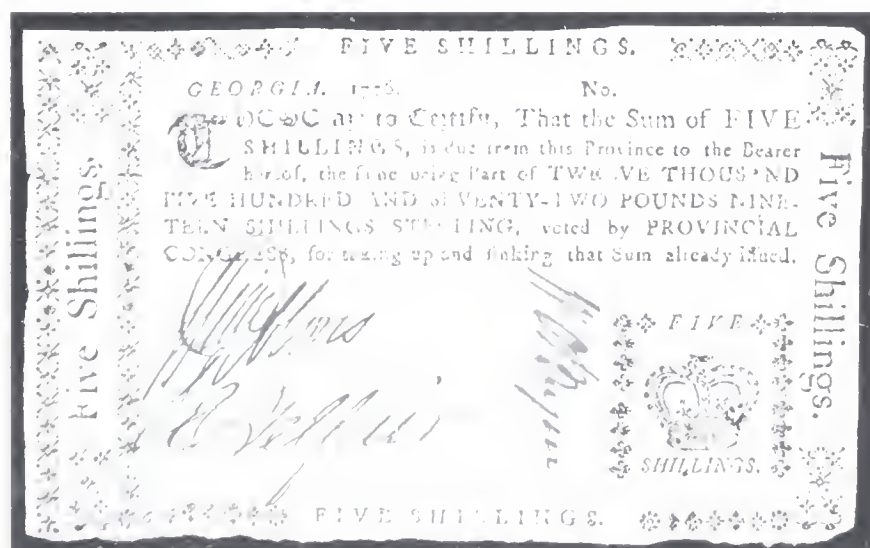 FIVE SHILLINGS.
GEORGIA. 1776. No.
THESE are to Certify, That the Sum of FIVE
SHILLINGS, is due from this Province to the Bearer
hereof, the same being Part of TWELVE THOUSAND
FIVE HUNDRED AND SEVENTY-TWO POUNDS NINE-
TEEN SHILLINGS STERLING, voted by PROVINCIAL
CONGRESS, for taking up and sinking that Sum already issued.
Five Shillings.
Five Shillings.
FIVE
SHILLINGS.
FIVE SHILLINGS.